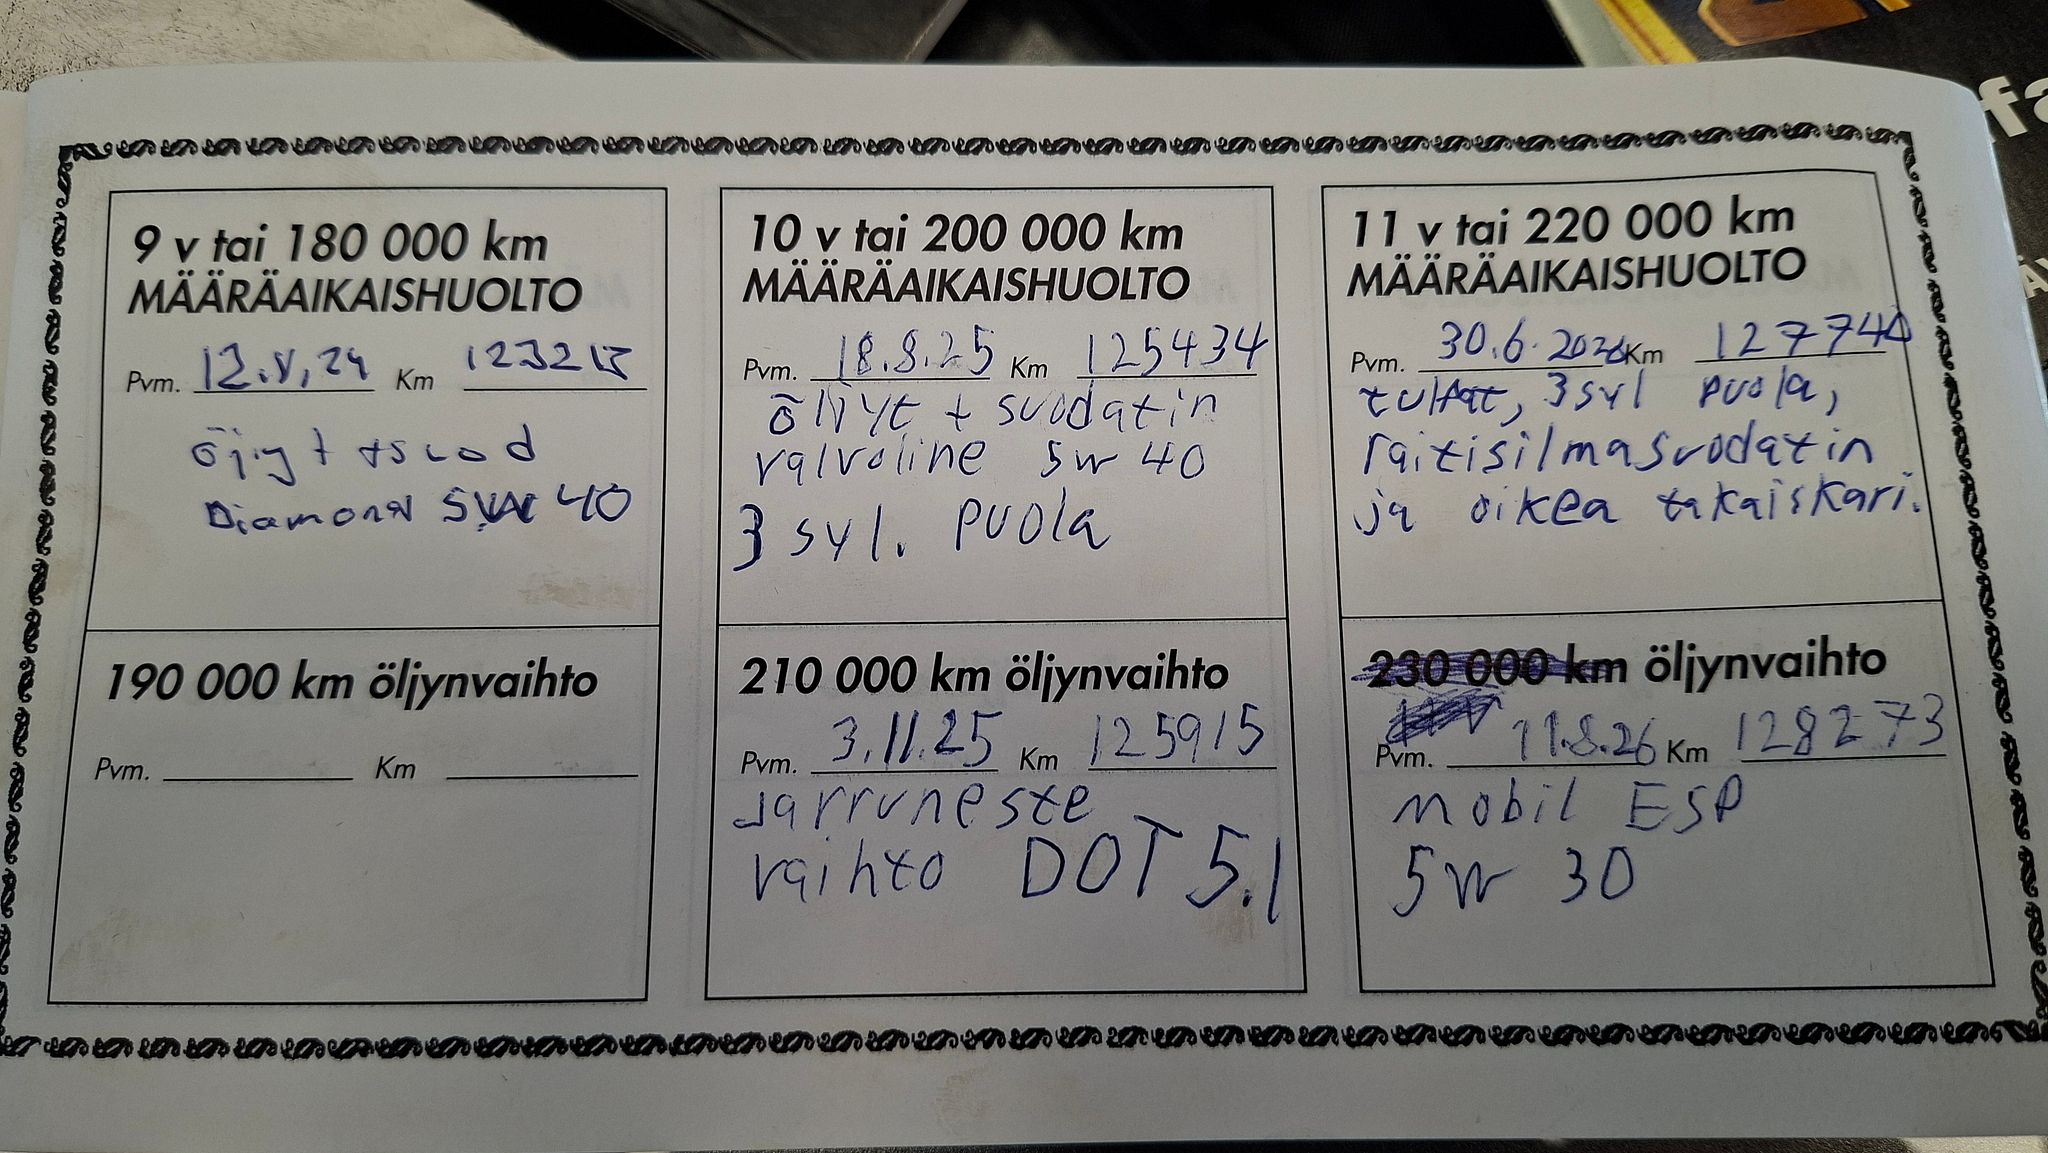 9 v tai 180 000 km
MÄÄRÄAIKAISHUOLTO
Pvm. 12.8.24 Km
öjyt +suod
Diamond 5W 40
190 000 km öljynvaihto
Pvm. Km
10 v tai 200 000 km
MÄÄRÄAIKAISHUOLTO
Pvm. 18.8.25 Km 125434
öljyt + suodatin
valvoline 5w 40
3 syl. puola
210 000 km öljynvaihto
Pvm. 3.11.25 Km 125915
Jarruneste
vaihto DOT 5.1
11 v tai 220 000 km
MÄÄRÄAIKAISHUOLTO
Pvm. 30.6.2026 Km 127740
tulpat, 3syl puola,
raitisilmasuodatin
ja oikea takaiskari.
230 000 km öljynvaihto
Pvm. 11.8.26 Km 128273
mobil ESP
5w 30